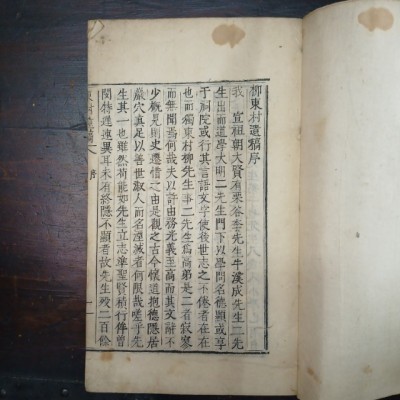 柳東村遺稿序
我 宣祖朝大賢有栗谷李先生牛溪成先生二先
生出而道學大明二先生門下以學問名德顯或享
于祠院或行其言語文字使後世志之不倦者在在
也而獨東村柳先生事二先生爲高弟是二者寂寥
而無聞焉何哉夫以許由務光義至高而其文辭不
少槪見開史遷惜之由是觀之古今懷道抱德隱居
巖穴眞足以善世淑人而名湮滅者何限哉嗟乎先
生其一也雖然苟能如先生立志準聖賢積行俟曾
閔特遲速異耳未有終隱不顯者故先生殁二百餘